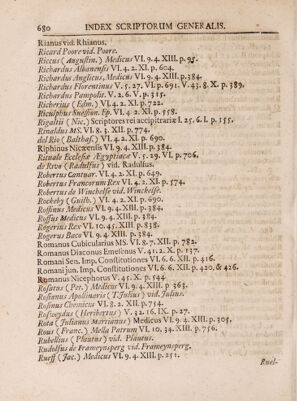 680 INDEX SCRIPTORUM GENERALIS.
Rianus vid. Rhianus.
Ricard Poore vid. Poore.
Riccus (Augustin.) Medicus VI. 9. 4. XIII. p. 95.
Richardus Albanensis VI. 4. 2. XI. p. 604.
Richardus Anglicus, Medicus VI. 9. 4. XIII. p. 384.
Richardus Florentinus V. 5. 27. VI. p. 691. V. 43. 8. X. p. 389.
Richardus Pampolit. V. 2. 6. V. p. 315.
Richerius (Edm.) VI. 4. 2. XI. p. 722.
Riculphus Suession. Ep. VI. 4. 2. XI. p. 158.
Rigaltii (Nic.) Scriptores rei accipitrariæ I. 25. 6. I. p. 155.
Rinaldus MS. VI. 8. 3. XII. p. 774.
del Rio (Balthas.) VI. 4. 2. XI. p. 690.
Riphinus Nicæensis VI. 9. 4. XIII. p. 384.
Rituale Ecclesiæ Ægyptiacæ V. 5. 29. VI. p. 706.
de Rivo (Radulfus) vid. Radulfus.
Robertus Cantuar. VI. 4. 2. XI. p. 649.
Robertus Francorum Rex VI. 4. 2. XI. p. 574.
Robertus de Winchelse vid. Winchelse.
Rockely (Guilh.) VI. 4. 2. XI. p. 690.
Roffinus Medicus VI. 9. 4. XIII. p. 384.
Roffus Medicus VI. 9. 4. XIII. p. 384.
Rogerius Rex VI. 10. 45. XIII. p. 838.
Rogerus Baco VI. 9. 4. XIII. p. 384.
Romanus Cubicularius MS. VI. 8. 7. XII. p. 782.
Romanus Diaconus Emesenus V. 41. 2. X. p. 137.
Romani Sen. Imp. Constitutiones VI. 6. 6. XII. p. 416.
Romani jun. Imp. Constitutiones VI. 6. 6. XII. p. 420. & 426.
Romanus Nicephorus V. 45. X. p. 544.
Rosatus (Per.) Medicus VI. 9. 4. XIII. p. 363.
Rosianus Apollinaris (T. Julius) vid. Julius.
Rosinus Chemicus VI. 8. 2. XII. p. 754.
Rosweydus (Heribertus) V. 32. 16. IX. p. 27.
Rota (Julianus Martianus) Medicus VI. 9. 4. XIII. p. 305.
Rous (Franc.) Mella Patrum VI. 10. 34. XIII. p. 756.
Rubellius (Plautus) vid. Plautus.
Rudolfus de Frameynsperg vid. Frameynsperg.
Rueff (Jac.) Medicus VI. 9. 4. XIII. p. 251.
Ruel-